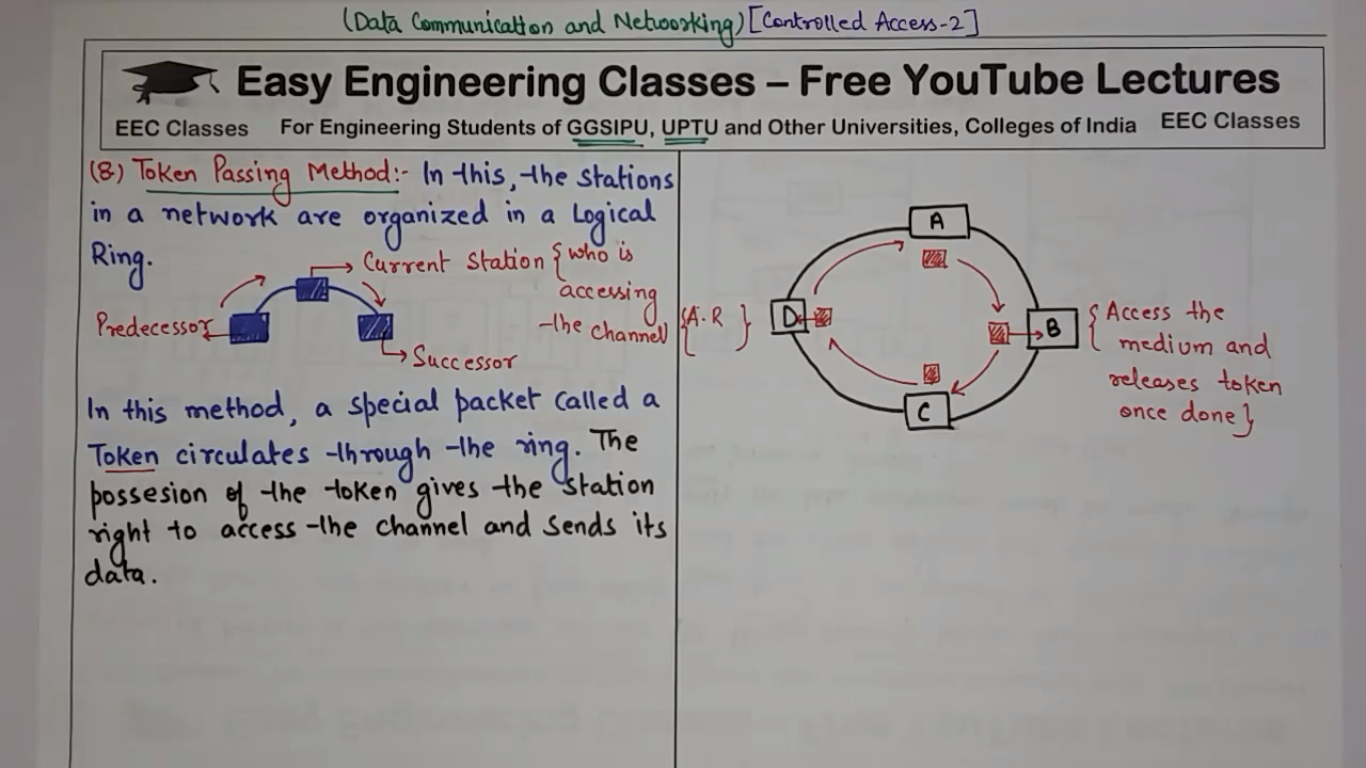 (Data Communication and Networking) [Controlled Access-2]
Easy Engineering Classes – Free YouTube Lectures
EEC Classes For Engineering Students of GGSIPU, UPTU and Other Universities, Colleges of India EEC Classes
(8) Token Passing Method:- In this, the stations
in a network are organized in a Logical
Ring.
Current Station {who is
accessing
the channel
Predecessor
Successor
In this method, a special packet called a
Token circulates through the ring. The
possesion of the token gives the station
right to access the channel and sends its
data.
A
{A.R}
D
B
{Access the
medium and
releases token
once done}
C